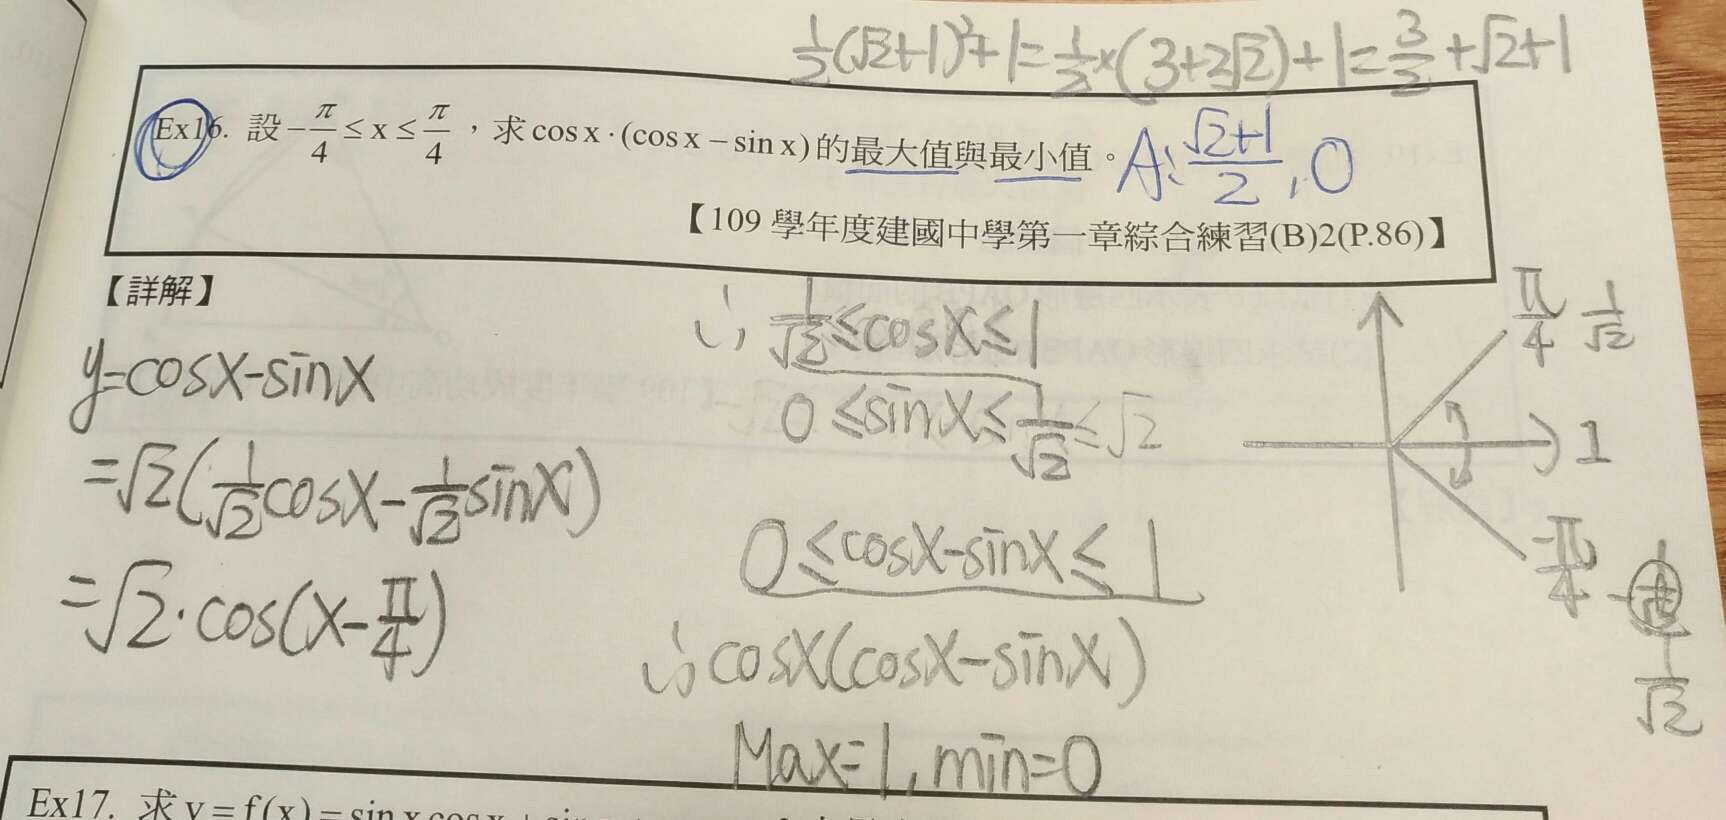 ½(√2+1)²+1=½×(3+2√2)+1=3/2+√2+1
Ex16. 設−π/4≤x≤π/4，求cosx·(cosx−sinx)的最大值與最小值。A: (√2+1)/2, 0
【109 學年度建國中學第一章綜合練習(B)2(P.86)】
【詳解】
y=cosx-sinx
=√2(1/√2 cosx-1/√2 sinx)
=√2·cos(x-π/4)
∴ 1/√2≤cosx≤1
0≤sinx≤1/√2≤√2
0≤cosx-sinx≤1
∴cosx(cosx-sinx)
Max=1, min=0
π/4 1/√2
1
-π/4
1/√2
Ex17. 求 y=f(x)=sin x cos x + sin